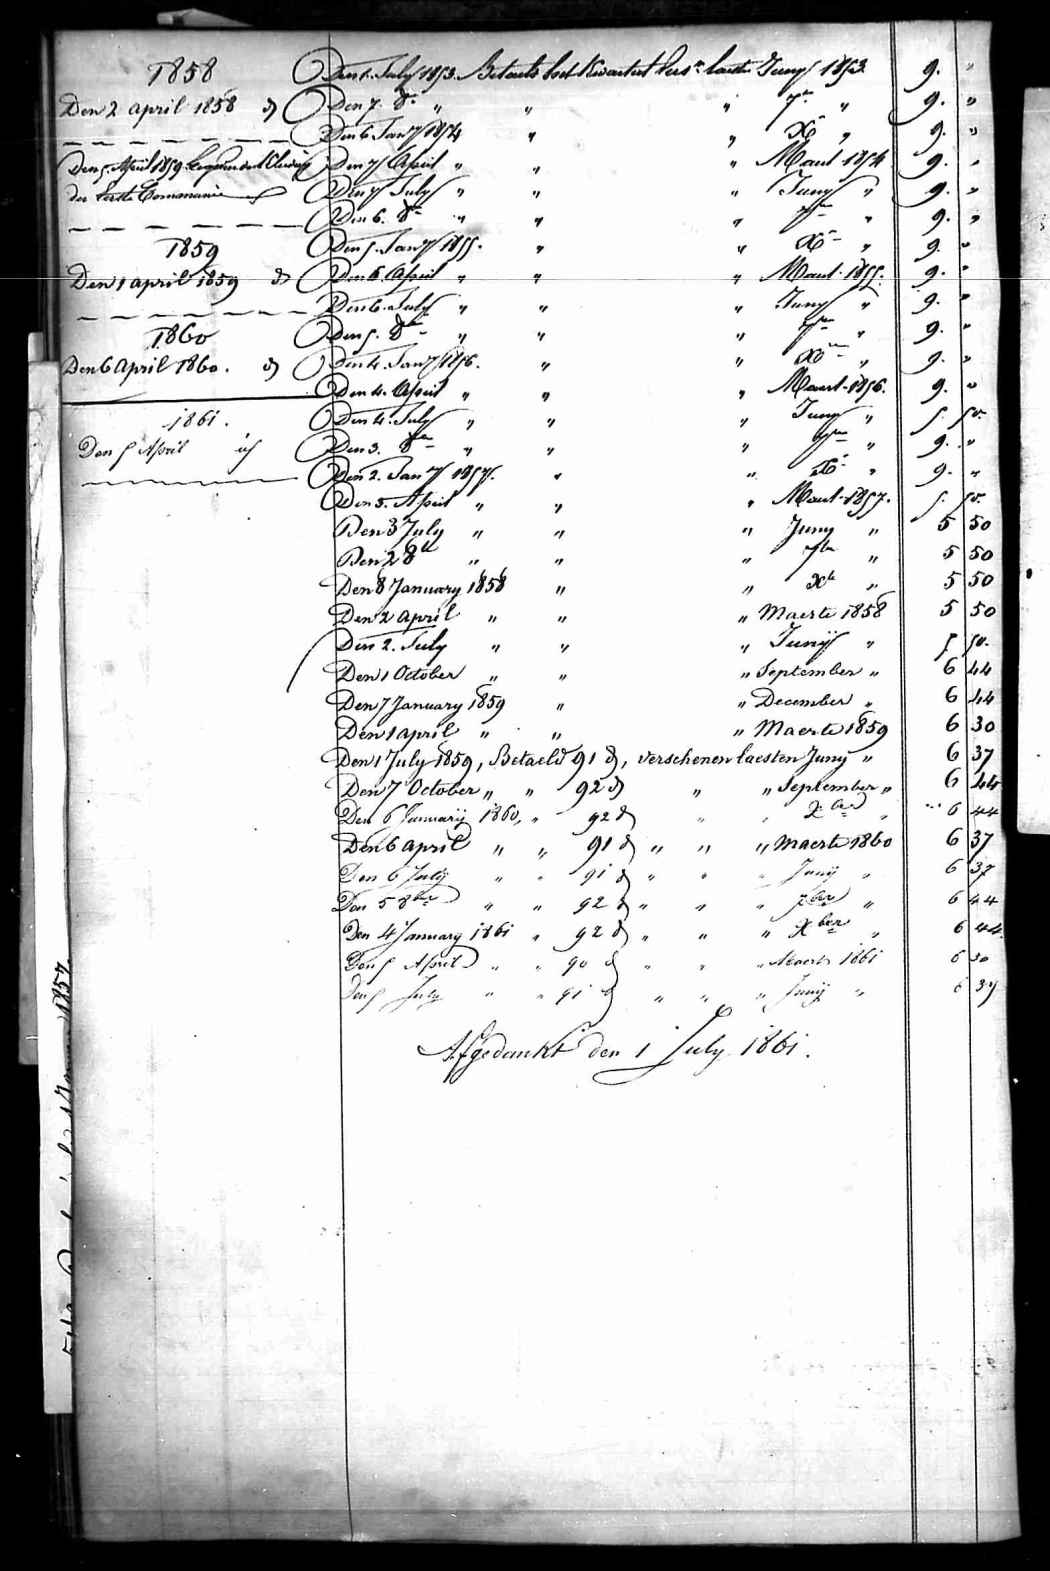 1858
Den 2 april 1858 d
Den 5 April 1859
der Eerste Communie
1859
Den 1 april 1859 d
1860
Den 6 April 1860. d
1861.
Den 5 April id
Den 1. July 1853. Betaelt het Kwartael laeste Juny 1853. 9. "
Den 7. 8re " " " 7re " 9. "
Den 6. Jany 1854 " " Xre " 9. "
Den 7 April " " " Maert 1854 9. "
Den 7 July " " " Juny " 9. "
Den 6. 8re " " " 7re " 9. "
Den 5. Jany 1855. " " Xre " 9. "
Den 6. April " " " Maert 1855. 9. "
Den 6. July " " " Juny " 9. "
Den 5. 8re " " " 7re " 9. "
Den 4. Jany 1856. " " Xre " 9. "
Den 4. April " " " Maert 1856. 9. "
Den 4. July " " " Juny " 5. 50.
Den 3. 8re " " " 7re " 9. "
Den 2. Jany 1857. " " Xre " 9. "
Den 3. April " " " Maert 1857. 5. 50.
Den 3 July " " " Juny " 5 50
Den 2 8re " " " 7bre " 5 50
Den 8 January 1858 " " Xbre " 5 50
Den 2 April " " " Maerte 1858 5 50
Den 2. July " " " Junij " 5. 50.
Den 1 October " " " September " 6 44
Den 7 January 1859 " " December " 6 44
Den 1 april " " " Maerte 1859 6 30
Den 1 July 1859, Betaeld 91 d, verschenen laesten Juny " 6 37
Den 7 October " " 92 d " " September " 6 44
Den 6 Januarij 1860, " 92 d " " Xber " 6 44
Den 6 april " " 91 d " " " maerte 1860 6 37
Den 6 July " " 91 d " " " Junij " 6 37
Den 5 8ber " " 92 d " " " 7ber " 6 44
Den 4 January 1861 " 92 d " " " Xber " 6 44
Den 5 April " " 90 d " " " Maert 1861 6 30
Den 5 July " " 91 d " " " Junij " 6 37
Afgedankt den 1 July 1861.